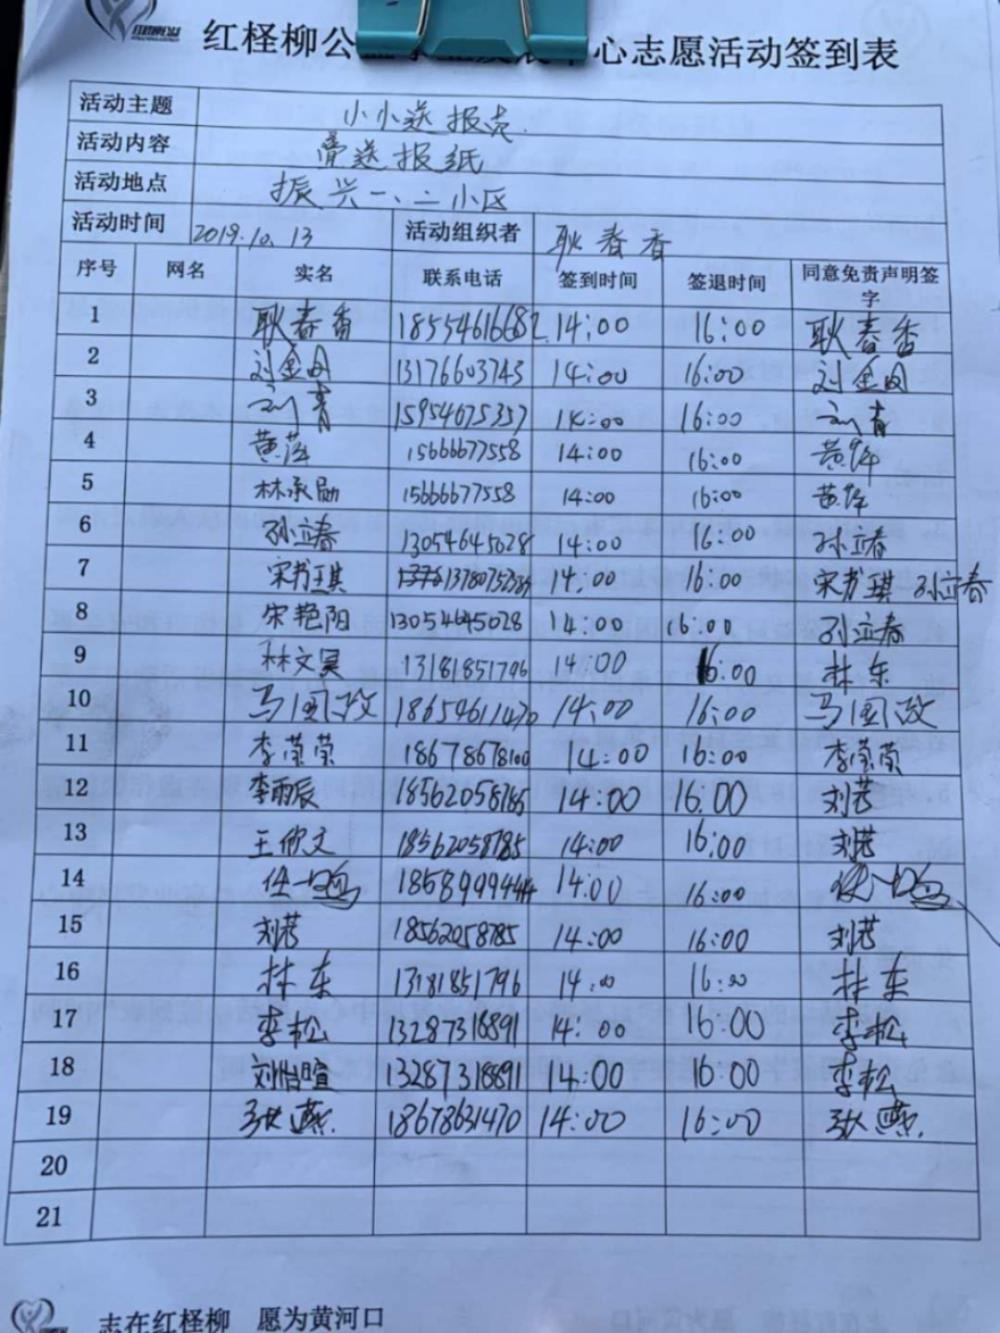 红柽柳公 心志愿活动签到表
活动主题 小小送报壳
活动内容 送报纸
活动地点 振兴一、二小区
活动时间 2019.10.13 活动组织者 耿春香
序号 网名 实名 联系电话 签到时间 签退时间 同意免责声明签字
1 耿春香 18554616682 14:00 16:00 耿春香
2 刘金国 13176603743 14:00 16:00 刘金国
3 刘青 15954675357 14:00 16:00 刘青
4 黄萍 15666677558 14:00 16:00 黄萍
5 林承勋 15666677558 14:00 16:00 黄萍
6 孙立春 13054645028 14:00 16:00 孙立春
7 宋书琪 14:00 16:00 宋书琪 孙立春
8 宋艳阳 13054645028 14:00 16:00 孙立春
9 林文昊 13181851796 14:00 16:00 林东
10 马国政 18654611470 14:00 16:00 马国政
11 李荣荣 18678678100 14:00 16:00 李荣荣
12 18562058785 14:00 16.00 刘芸
13 王欣文 18562058785 14:00 16:00 刘芸
14 14:00 16:00
15 刘芸 18562058785 14:00 16:00 刘芸
16 林东 13181851796 14:00 16:00 林东
17 李松 13287318891 14:00 16:00 李松
18 刘怡暄 13287318891 14:00 16:00 李松
19 燕 18678631470 14:00 16:00 燕
20
21
志在红柽柳 愿为黄河口